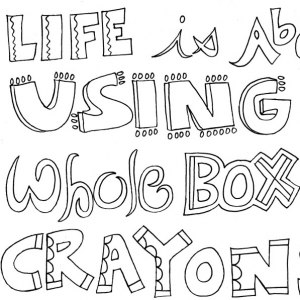 LIFE is Ab
USING
Whole BOX
CRAYON